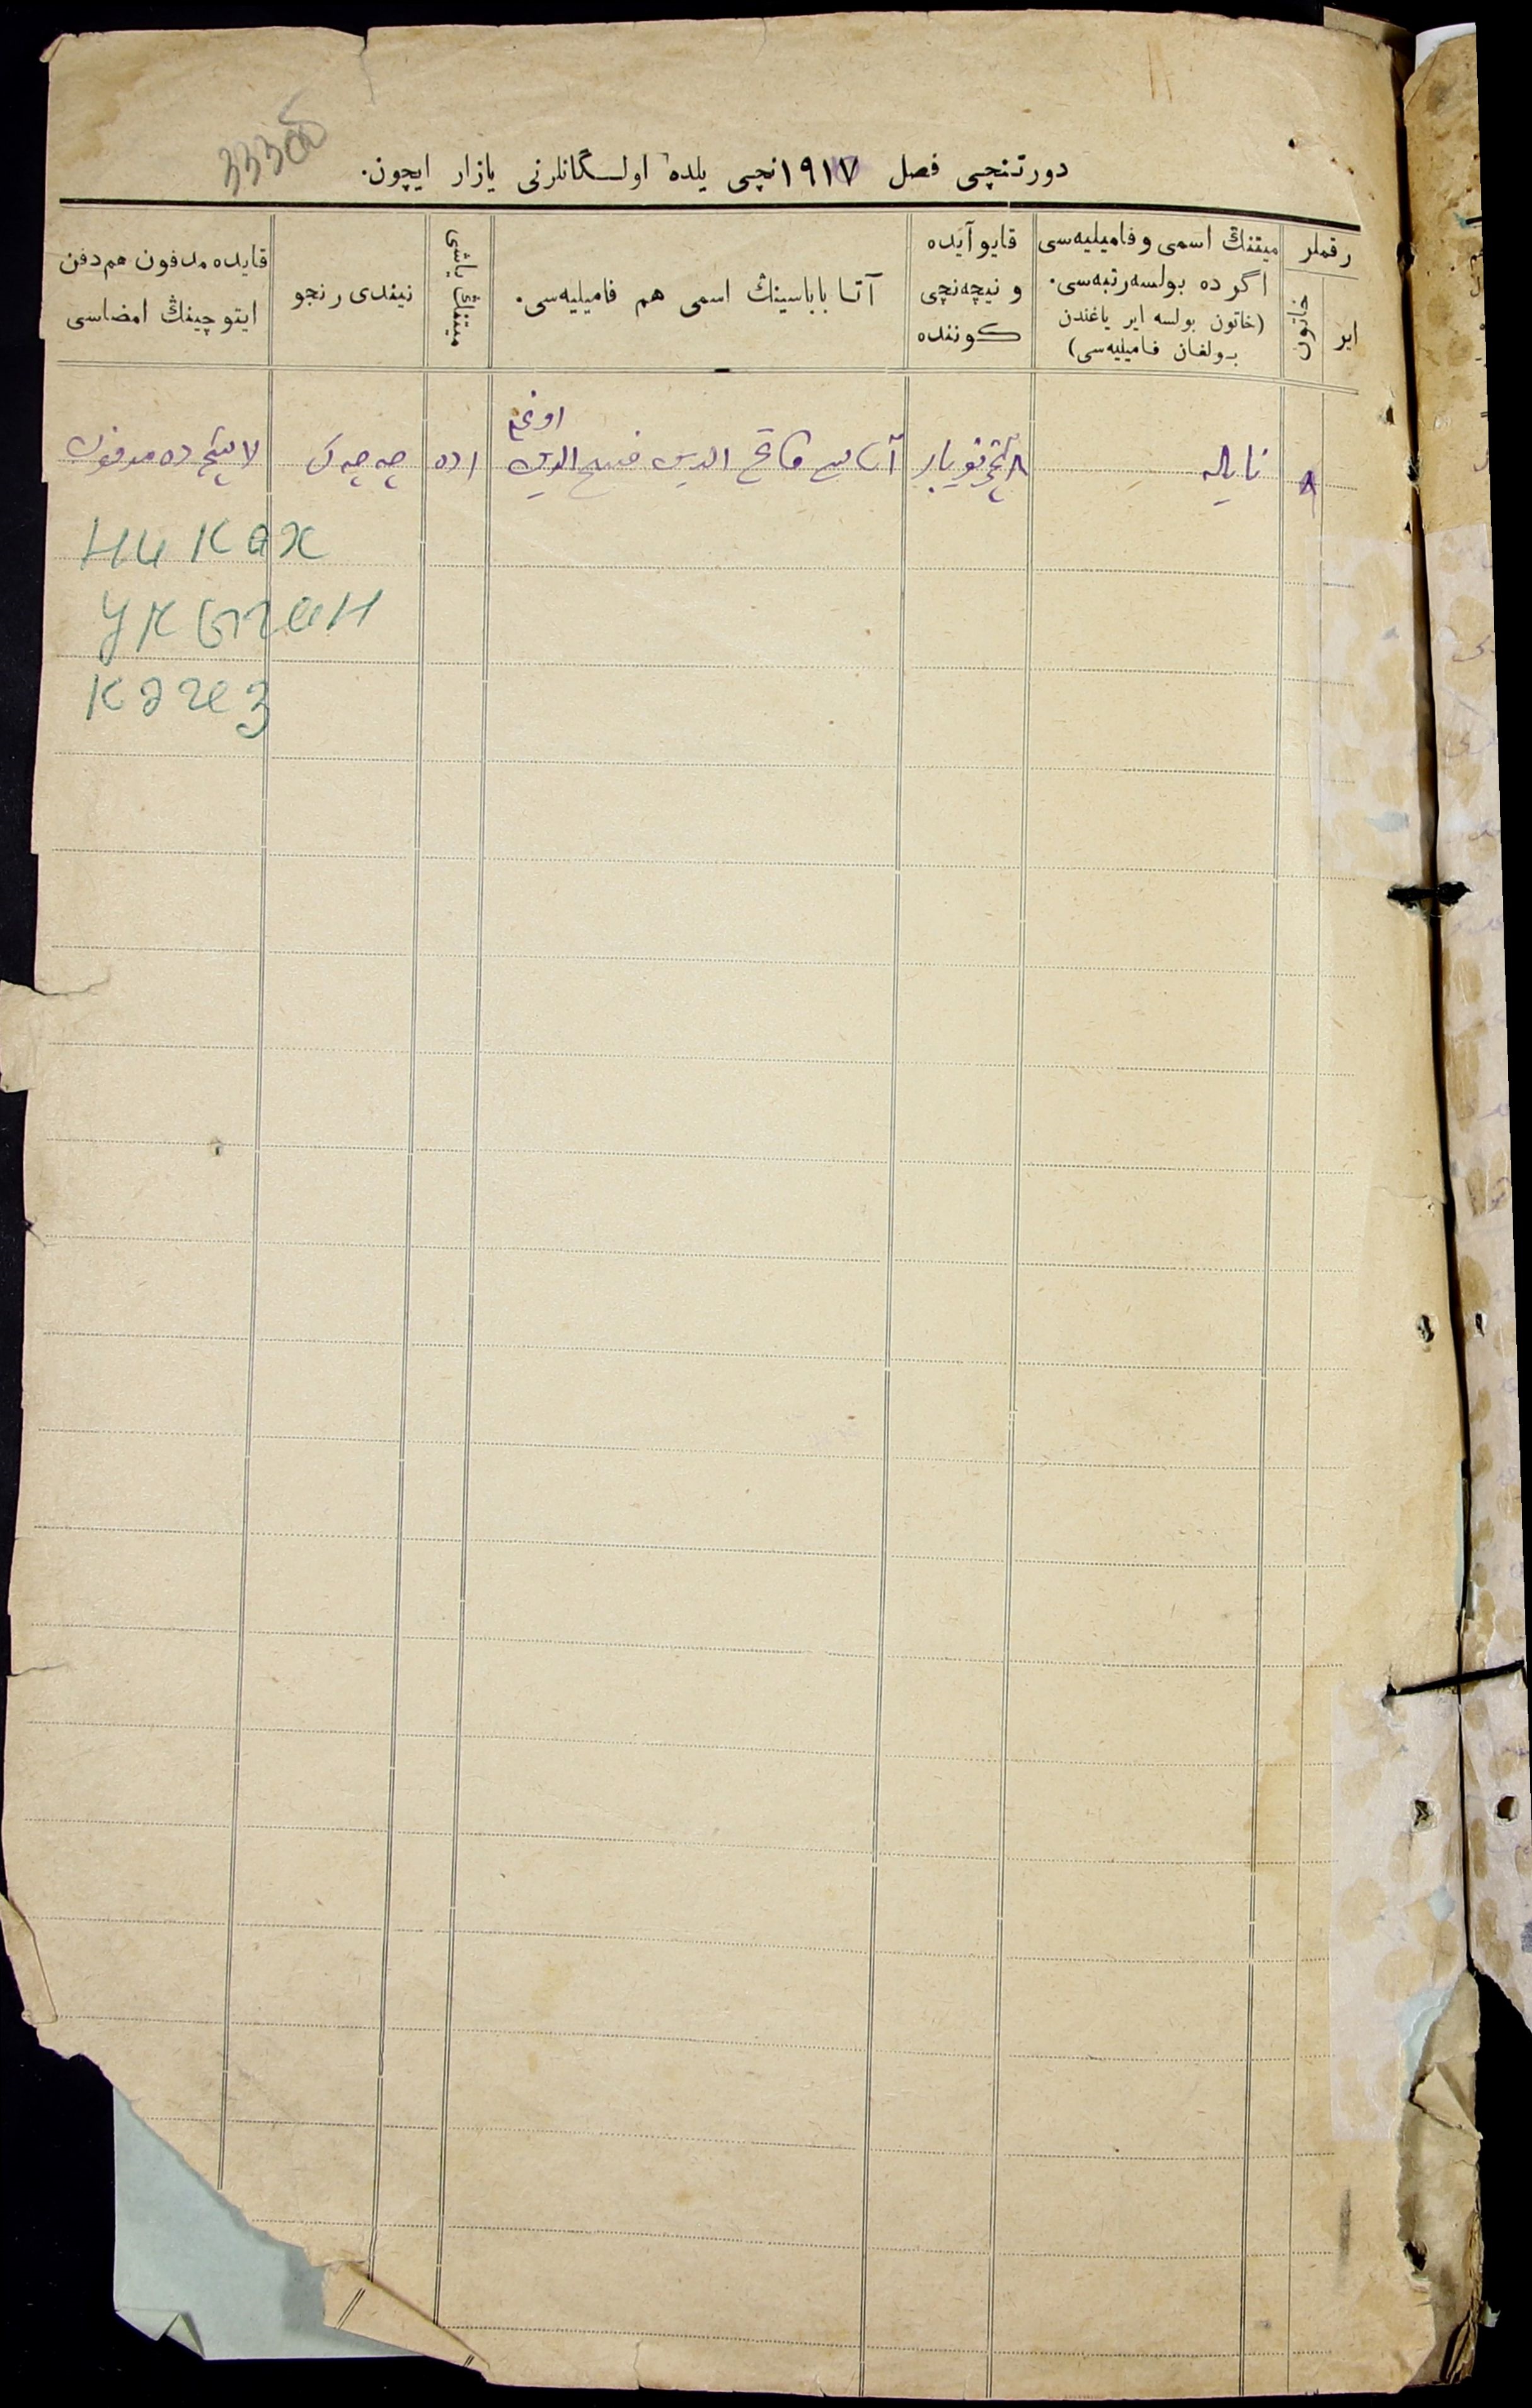 333 об
دورتنچی فصل ۱۹۱۷نچی یلده اولسگانلرنی یازار ایچون.
رقملر
ایر
خاتون
میتنڭ اسمی و فامیلیه‌سی
اگر ده بولسه رتبه‌سی.
(خاتون بولسه ایر یاغندن
بولغان فامیلیه‌سی)
قایو آیده
و نیچه‌نچی
کوننده
آتا باباسینڭ اسمی هم فامیلیه‌سی.
میتنڭ یاشی
نیندی رنجو
قایده مدفون هم دفن
ایتوچینڭ امضاسی
۸
نایله
۸نچی نویابر
آتاسی
الدین
الدین
اوغلی
۱ ده
چه چه ک
ده مدفون
Никах
укыган
кәгез